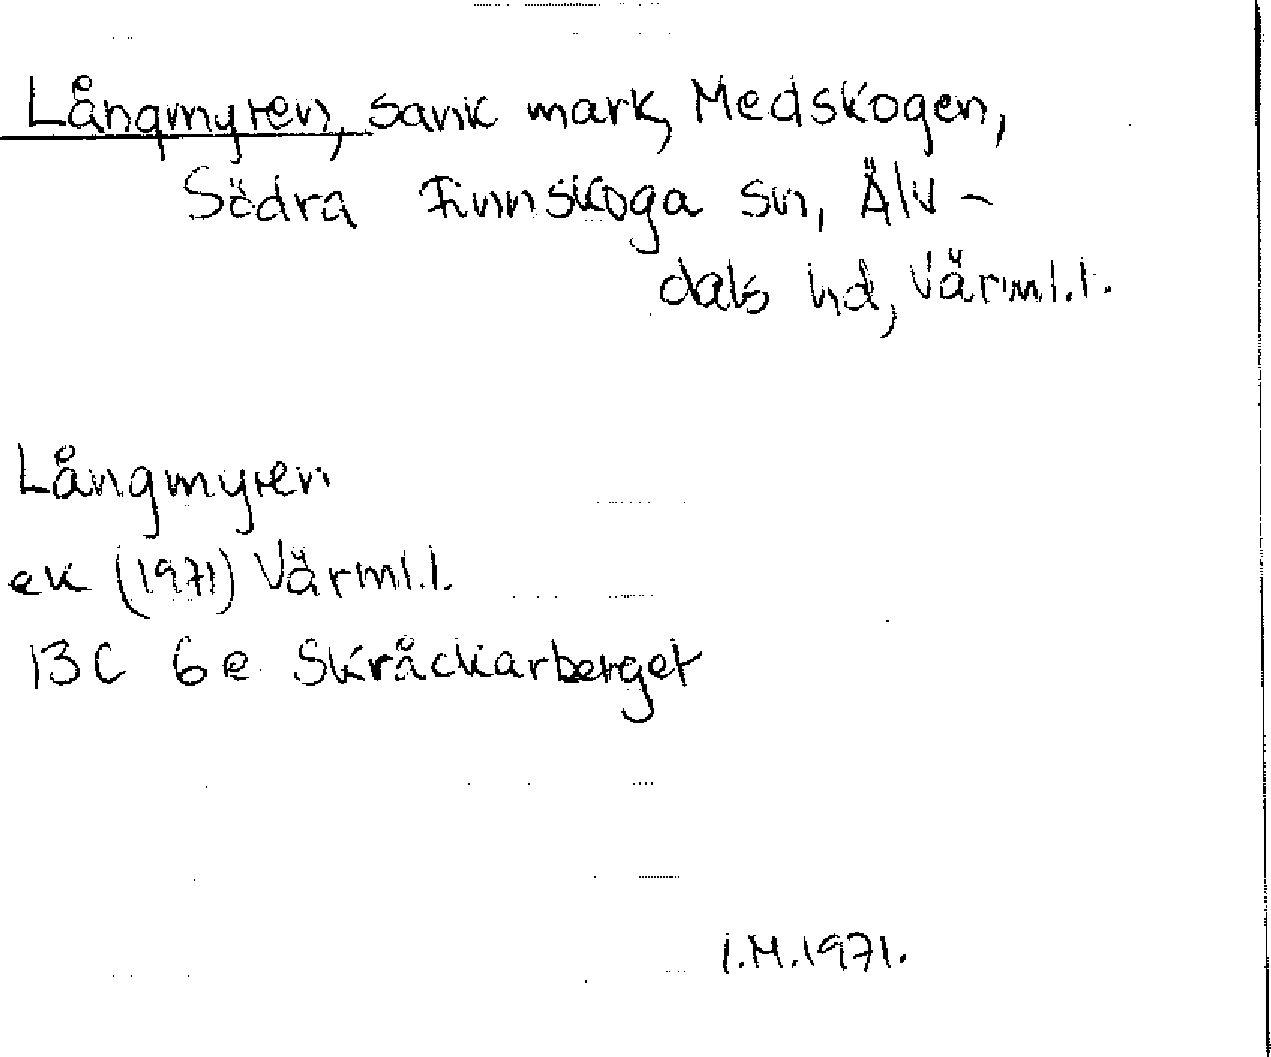 Långmyren, sank mark, Medskogen,
Södra Finnskoga sn, Älv-
dals hd, Värml.l.
Långmyren
ek (1971) Värml.l.
13C 6e Skråckarberget
I.M.1971.